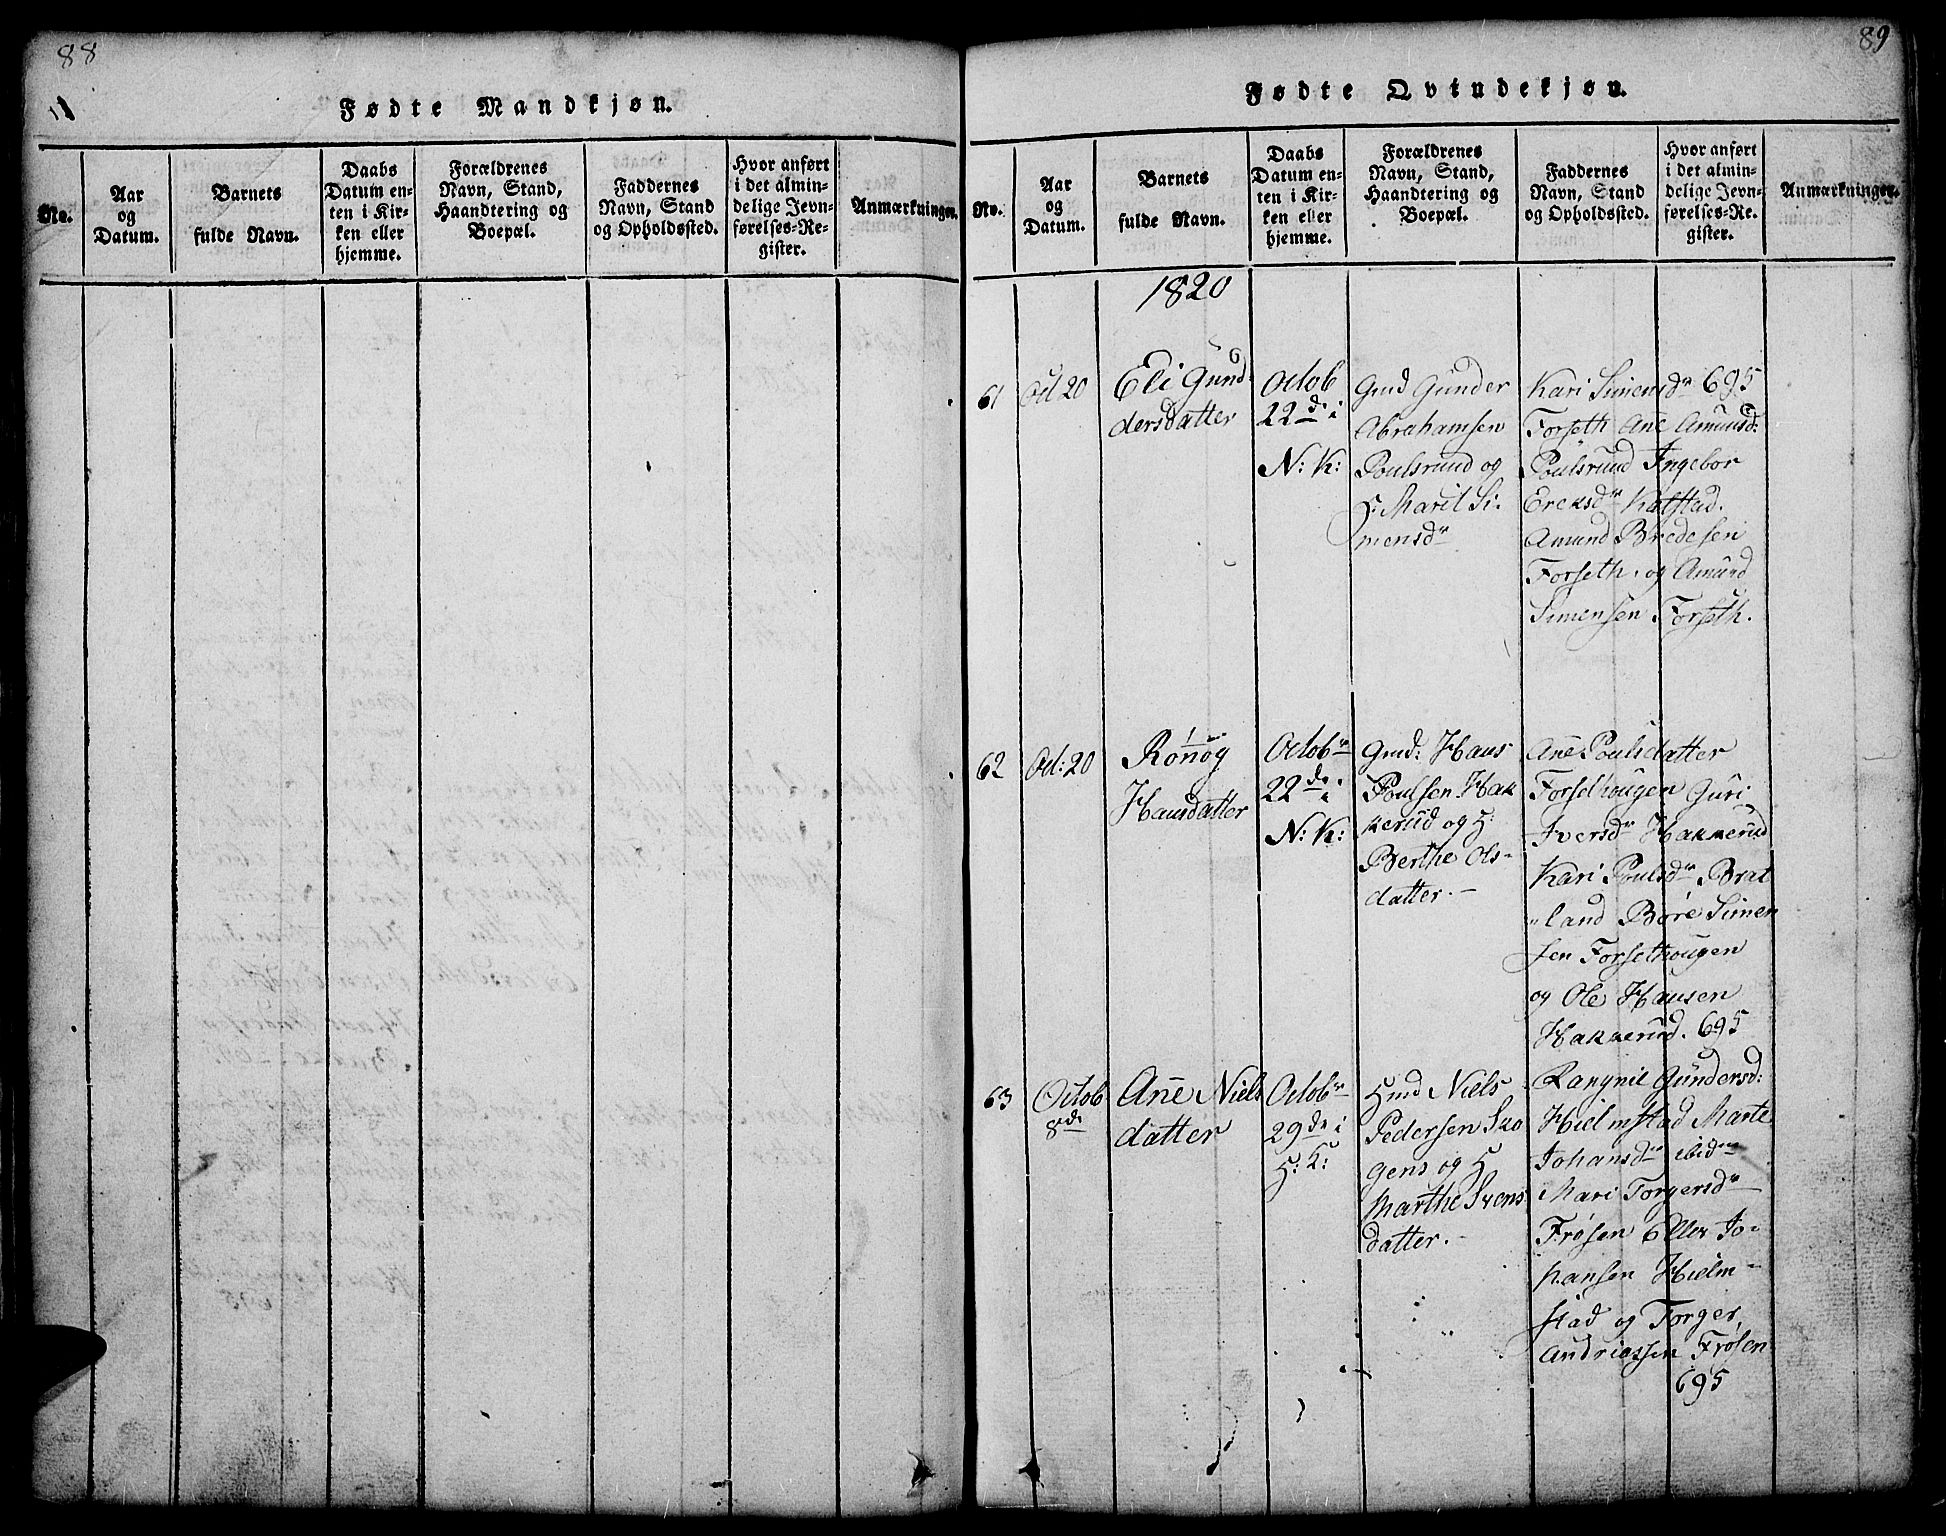 88
Fødte Mandkjøn.
No.
Aar
og
Datum.
Barnets
fulde Navn.
Daabs
Datum en-
ten i Kir-
ken eller
hjemme.
Forældrenes
Navn, Stand,
Haandtering og
Boepæl.
Faddernes
Navn, Stand
og Opholdssted.
Hvor anført
i det almin-
delige Jevn-
førelses-Re-
gister.
Anmærkninger.
89
Fødte Qvindekjøn.
No.
Aar
og
Datum.
Barnets
fulde Navn.
Daabs
Datum en-
ten i Kir-
ken eller
hjemme.
Forældrenes
Navn, Stand,
Haandtering og
Boepæl.
Faddernes
Navn, Stand
og Opholdssted.
Hvor anført
i det almin-
delige Jevn-
førelses-Re-
gister.
Anmærkninger.
1820
61
Oct 20
Eli Gund-
dersdatter
Octob
22de i
N: K:
Gmd Gunder
Abrahamsen
Poulsrund og
H: Marit Si-
mensdr
Kari Simensdr 695
Forseth Ane Amunsd:
Poulsrund Ingebor
Ereksdr Kalstad.
Amund Bredesen
Forseth. og Amund
Simensen Forseth.
62
Oct: 20
Rönnög
Hansdatter
Octobr
22de i
N: K:
Gmd: Hans
Poulsen Hak
kerud og H:
Berthe Ols-
datter. -
Ane Poulsdatter
Forsethougen Guri
Iversdr Hakkerud
Kari Poulsdr Brat
"land Böre Simen
sen Forsethougen
og Ole Hansen
Hakkerud. 695
63
Octob
8de
Ane Niels
datter
Octobr
29de i
H: K:
Hmd Niels
Pedersen Sko
gens og H
Marthe Svens
datter. -
Rangnil Gundersd:
Hielmstad Marte
Johansdr ibidm
Mari Torgersdr
Frösen Eller Jo-
hansen Hielm-
stad og Torger,
Andriassen Frösen
695